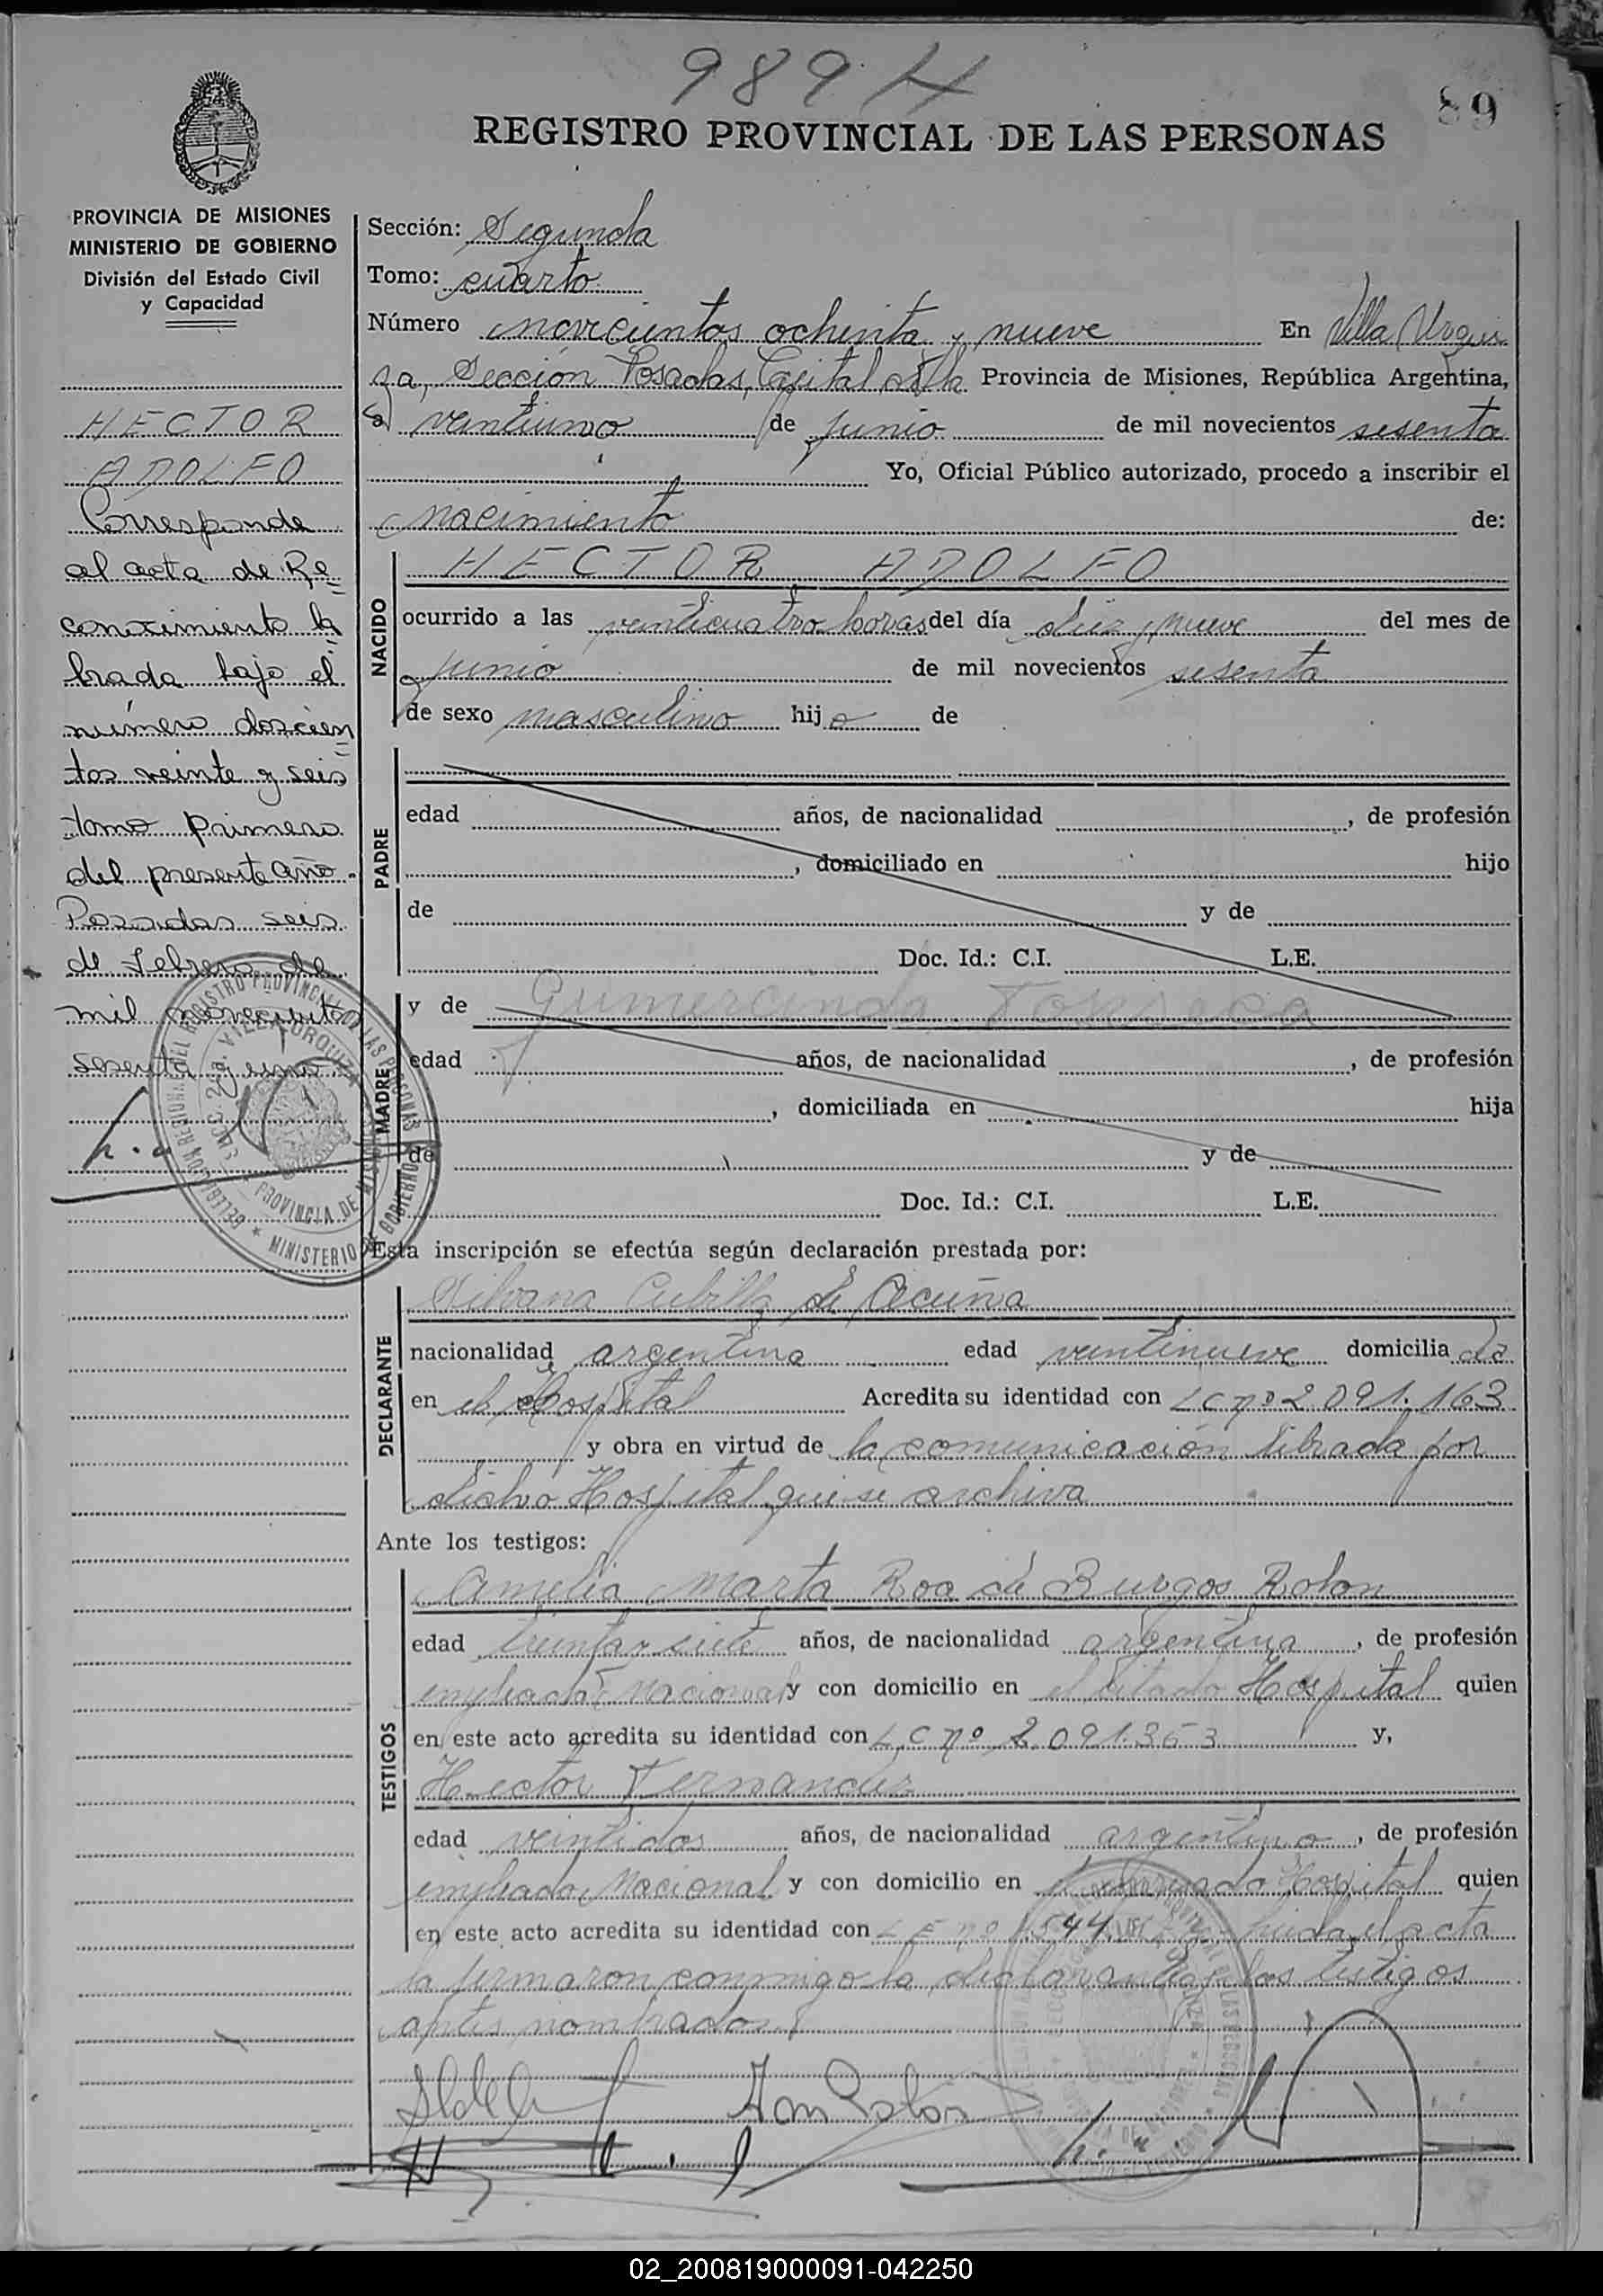 989 H
89
REGISTRO PROVINCIAL DE LAS PERSONAS
PROVINCIA DE MISIONES
MINISTERIO DE GOBIERNO
División del Estado Civil
y Capacidad
HECTOR
ADOLFO
Corresponde
al acta de Re
conocimiento la
brada bajo el
número doscien
tos veinte y seis
tomo primero
del presente año.
Posadas seis
de Febrero de
mil novecientos
sesenta y uno
Sección: Segunda
Tomo: cuarto
Número novecientos ochenta y nueve En Villa Urqui
za, Sección Posadas, Capital de la Provincia de Misiones, República Argentina,
a veintiuno de junio de mil novecientos sesenta
Yo, Oficial Público autorizado, procedo a inscribir el
nacimiento de:
NACIDO
HECTOR ADOLFO
ocurrido a las veinticuatro horas del día diez y nueve del mes de
junio de mil novecientos sesenta
de sexo masculino hijo de
PADRE
edad años, de nacionalidad , de profesión
, domiciliado en hijo
de y de
Doc. Id.: C.I. L.E.
MADRE
y de Gumercinda Fonseca
edad años, de nacionalidad , de profesión
, domiciliada en hija
de y de
Doc. Id.: C.I. L.E.
Esta inscripción se efectúa según declaración prestada por:
DECLARANTE
Silvana Cubilla de Acuña
nacionalidad argentina edad veintinueve domiciliada
en el Hospital Acredita su identidad con LC nº 2.091.163
y obra en virtud de la comunicación librada por
dicho Hospital que se archiva
Ante los testigos:
TESTIGOS
Amelia Marta Roa de Burgos Rolon
edad treinta y siete años, de nacionalidad argentina, de profesión
empleada Nacional y con domicilio en el citado Hospital quien
en este acto acredita su identidad con LC nº 2.091.353 y,
Hector Fernandez
edad veintidos años, de nacionalidad argentino, de profesión
empleado Nacional y con domicilio en Hospital quien
en este acto acredita su identidad con LE nº acta
la firmaron conmigo la declarante y los testigos
antes nombrados
DELEGACION REGIONAL DEL REGISTRO PROVINCIAL DE LAS PERSONAS
SECC. 2da. VILLA URQUIZA
PROVINCIA DE MISIONES
MINISTERIO DE GOBIERNO
02_200819000091-042250